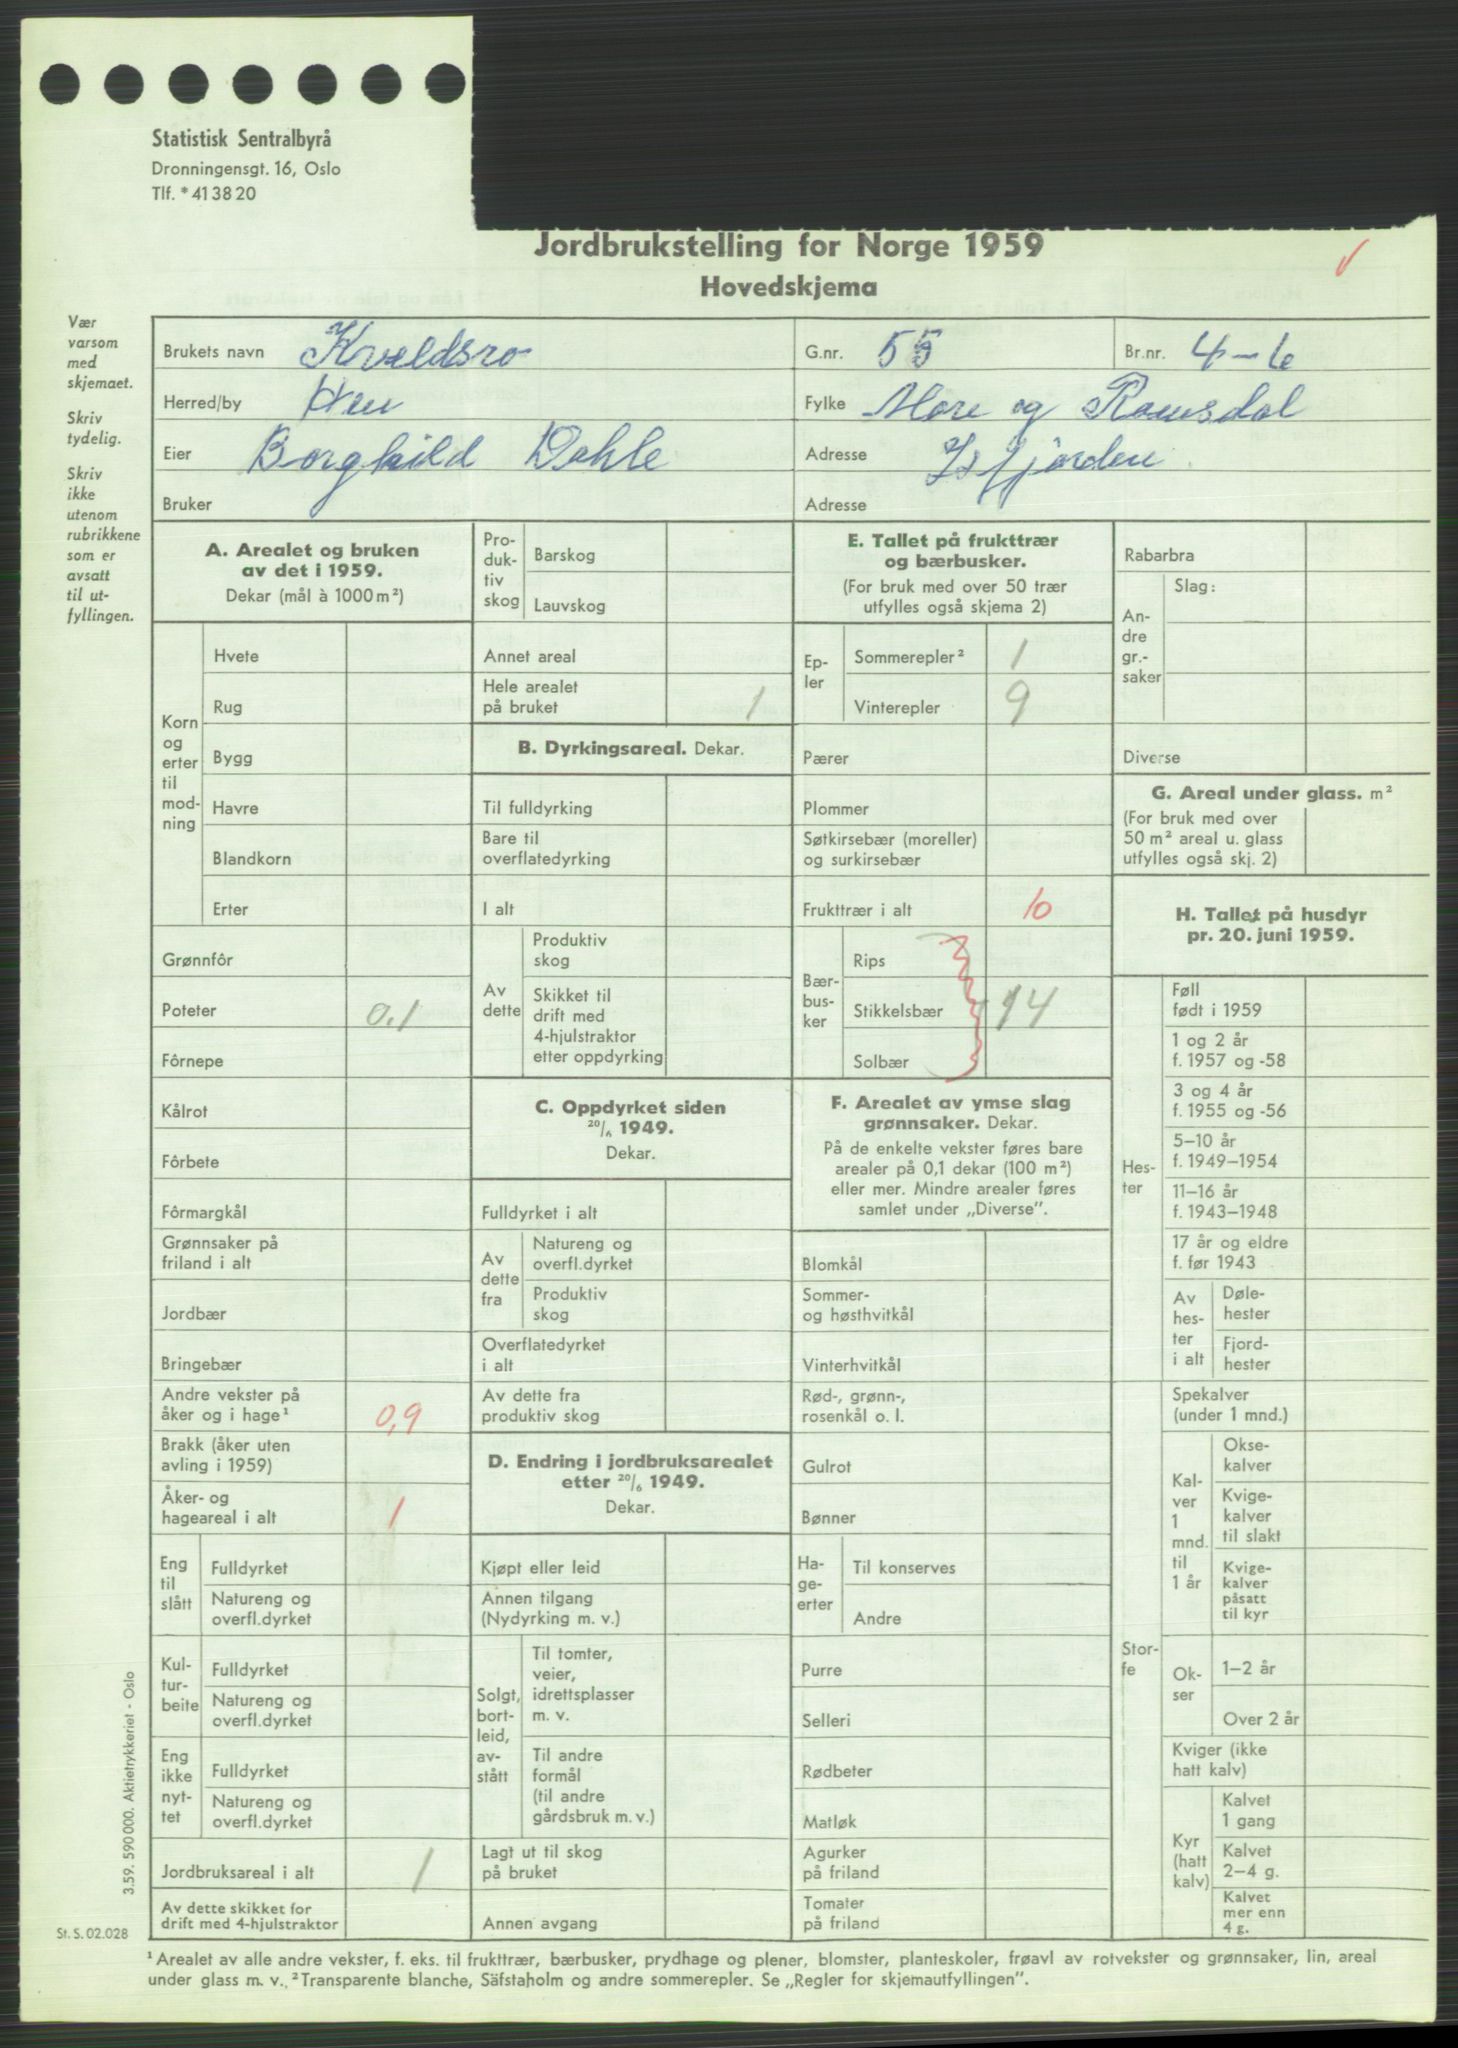 Statistisk Sentralbyrå
Dronningensgt. 16, Oslo
Tlf. *41 38 20
Jordbrukstelling for Norge 1959
Hovedskjema
Vær
varsom
med
skjemaet.
Skriv
tydelig.
Skriv
ikke
utenom
rubrikkene
som er
avsatt
til ut-
fyllingen.
Brukets navn Kveldsro G.nr. 55 Br.nr. 4-6
Herred/by Hen Fylke Møre og Romsdal
Eier Borghild Dahle Adresse Isfjorden
Bruker Adresse
A. Arealet og bruken
av det i 1959.
Dekar (mål à 1000 m²)
Korn
og
erter
til
mod-
ning
Hvete
Rug
Bygg
Havre
Blandkorn
Erter
Grønnfôr
Poteter 0.1
Fôrnepe
Kålrot
Fôrbete
Fôrmargkål
Grønnsaker på
friland i alt
Jordbær
Bringebær
Andre vekster på
åker og i hage¹ 0,9
Brakk (åker uten
avling i 1959)
Åker- og
hageareal i alt 1
Eng
til
slått
Fulldyrket
Natureng og
overfl.dyrket
Kul-
tur-
beite
Fulldyrket
Natureng og
overfl.dyrket
Eng
ikke
nyt-
tet
Fulldyrket
Natureng og
overfl.dyrket
Jordbruksareal i alt 1
Av dette skikket for
drift med 4-hjulstraktor
Pro-
duk-
tiv
skog
Barskog
Lauvskog
Annet areal
Hele arealet
på bruket 1
B. Dyrkingsareal. Dekar.
Til fulldyrking
Bare til
overflatedyrking
I alt
Av
dette
Produktiv
skog
Skikket til
drift med
4-hjulstraktor
etter oppdyrking
C. Oppdyrket siden
20/6 1949.
Dekar.
Fulldyrket i alt
Av
dette
fra
Natureng og
overfl.dyrket
Produktiv
skog
Overflatedyrket
i alt
Av dette fra
produktiv skog
D. Endring i jordbruksarealet
etter 20/6 1949.
Dekar.
Kjøpt eller leid
Annen tilgang
(Nydyrking m. v.)
Solgt,
bort-
leid,
av-
stått
Til tomter,
veier,
idrettsplasser
m. v.
Til andre
formål
(til andre
gårdsbruk m. v.)
Lagt ut til skog
på bruket
Annen avgang
E. Tallet på frukttrær
og bærbusker.
(For bruk med over 50 trær
utfylles også skjema 2)
Ep-
ler
Sommerepler² 1
Vinterepler 9
Pærer
Plommer
Søtkirsebær (moreller)
og surkirsebær
Frukttrær i alt 10
Bær-
bus-
ker
Rips
Stikkelsbær 14
Solbær
F. Arealet av ymse slag
grønnsaker. Dekar.
På de enkelte vekster føres bare
arealer på 0,1 dekar (100 m²)
eller mer. Mindre arealer føres
samlet under „Diverse”.
Blomkål
Sommer-
og høsthvitkål
Vinterhvitkål
Rød-, grønn-,
rosenkål o. l.
Gulrot
Bønner
Ha-
ge-
erter
Til konserves
Andre
Purre
Selleri
Rødbeter
Matløk
Agurker
på friland
Tomater
på friland
Rabarbra
An-
dre
gr.-
saker
Slag:
Diverse
G. Areal under glass. m²
(For bruk med over
50 m² areal u. glass
utfylles også skj. 2)
H. Tallet på husdyr
pr. 20. juni 1959.
Hes-
ter
Føll
født i 1959
1 og 2 år
f. 1957 og -58
3 og 4 år
f. 1955 og -56
5–10 år
f. 1949–1954
11–16 år
f. 1943–1948
17 år og eldre
f. før 1943
Av
hes-
ter
i alt
Døle-
hester
Fjord-
hester
Stor-
fe
Spekalver
(under 1 mnd.)
Kal-
ver
1
mnd.
til
1 år
Okse-
kalver
Kvige-
kalver
til slakt
Kvige-
kalver
påsatt
til kyr
Ok-
ser
1–2 år
Over 2 år
Kviger (ikke
hatt kalv)
Kyr
(hatt
kalv)
Kalvet
1 gang
Kalvet
2–4 g.
Kalvet
mer enn
4 g.
3.59. 590 000. Aktietrykkeriet - Oslo
St. S. 02.028
¹ Arealet av alle andre vekster, f. eks. til frukttrær, bærbusker, prydhage og plener, blomster, planteskoler, frøavl av rotvekster og grønnsaker, lin, areal
under glass m. v. ² Transparente blanche, Säfstaholm og andre sommerepler. Se „Regler for skjemautfyllingen”.